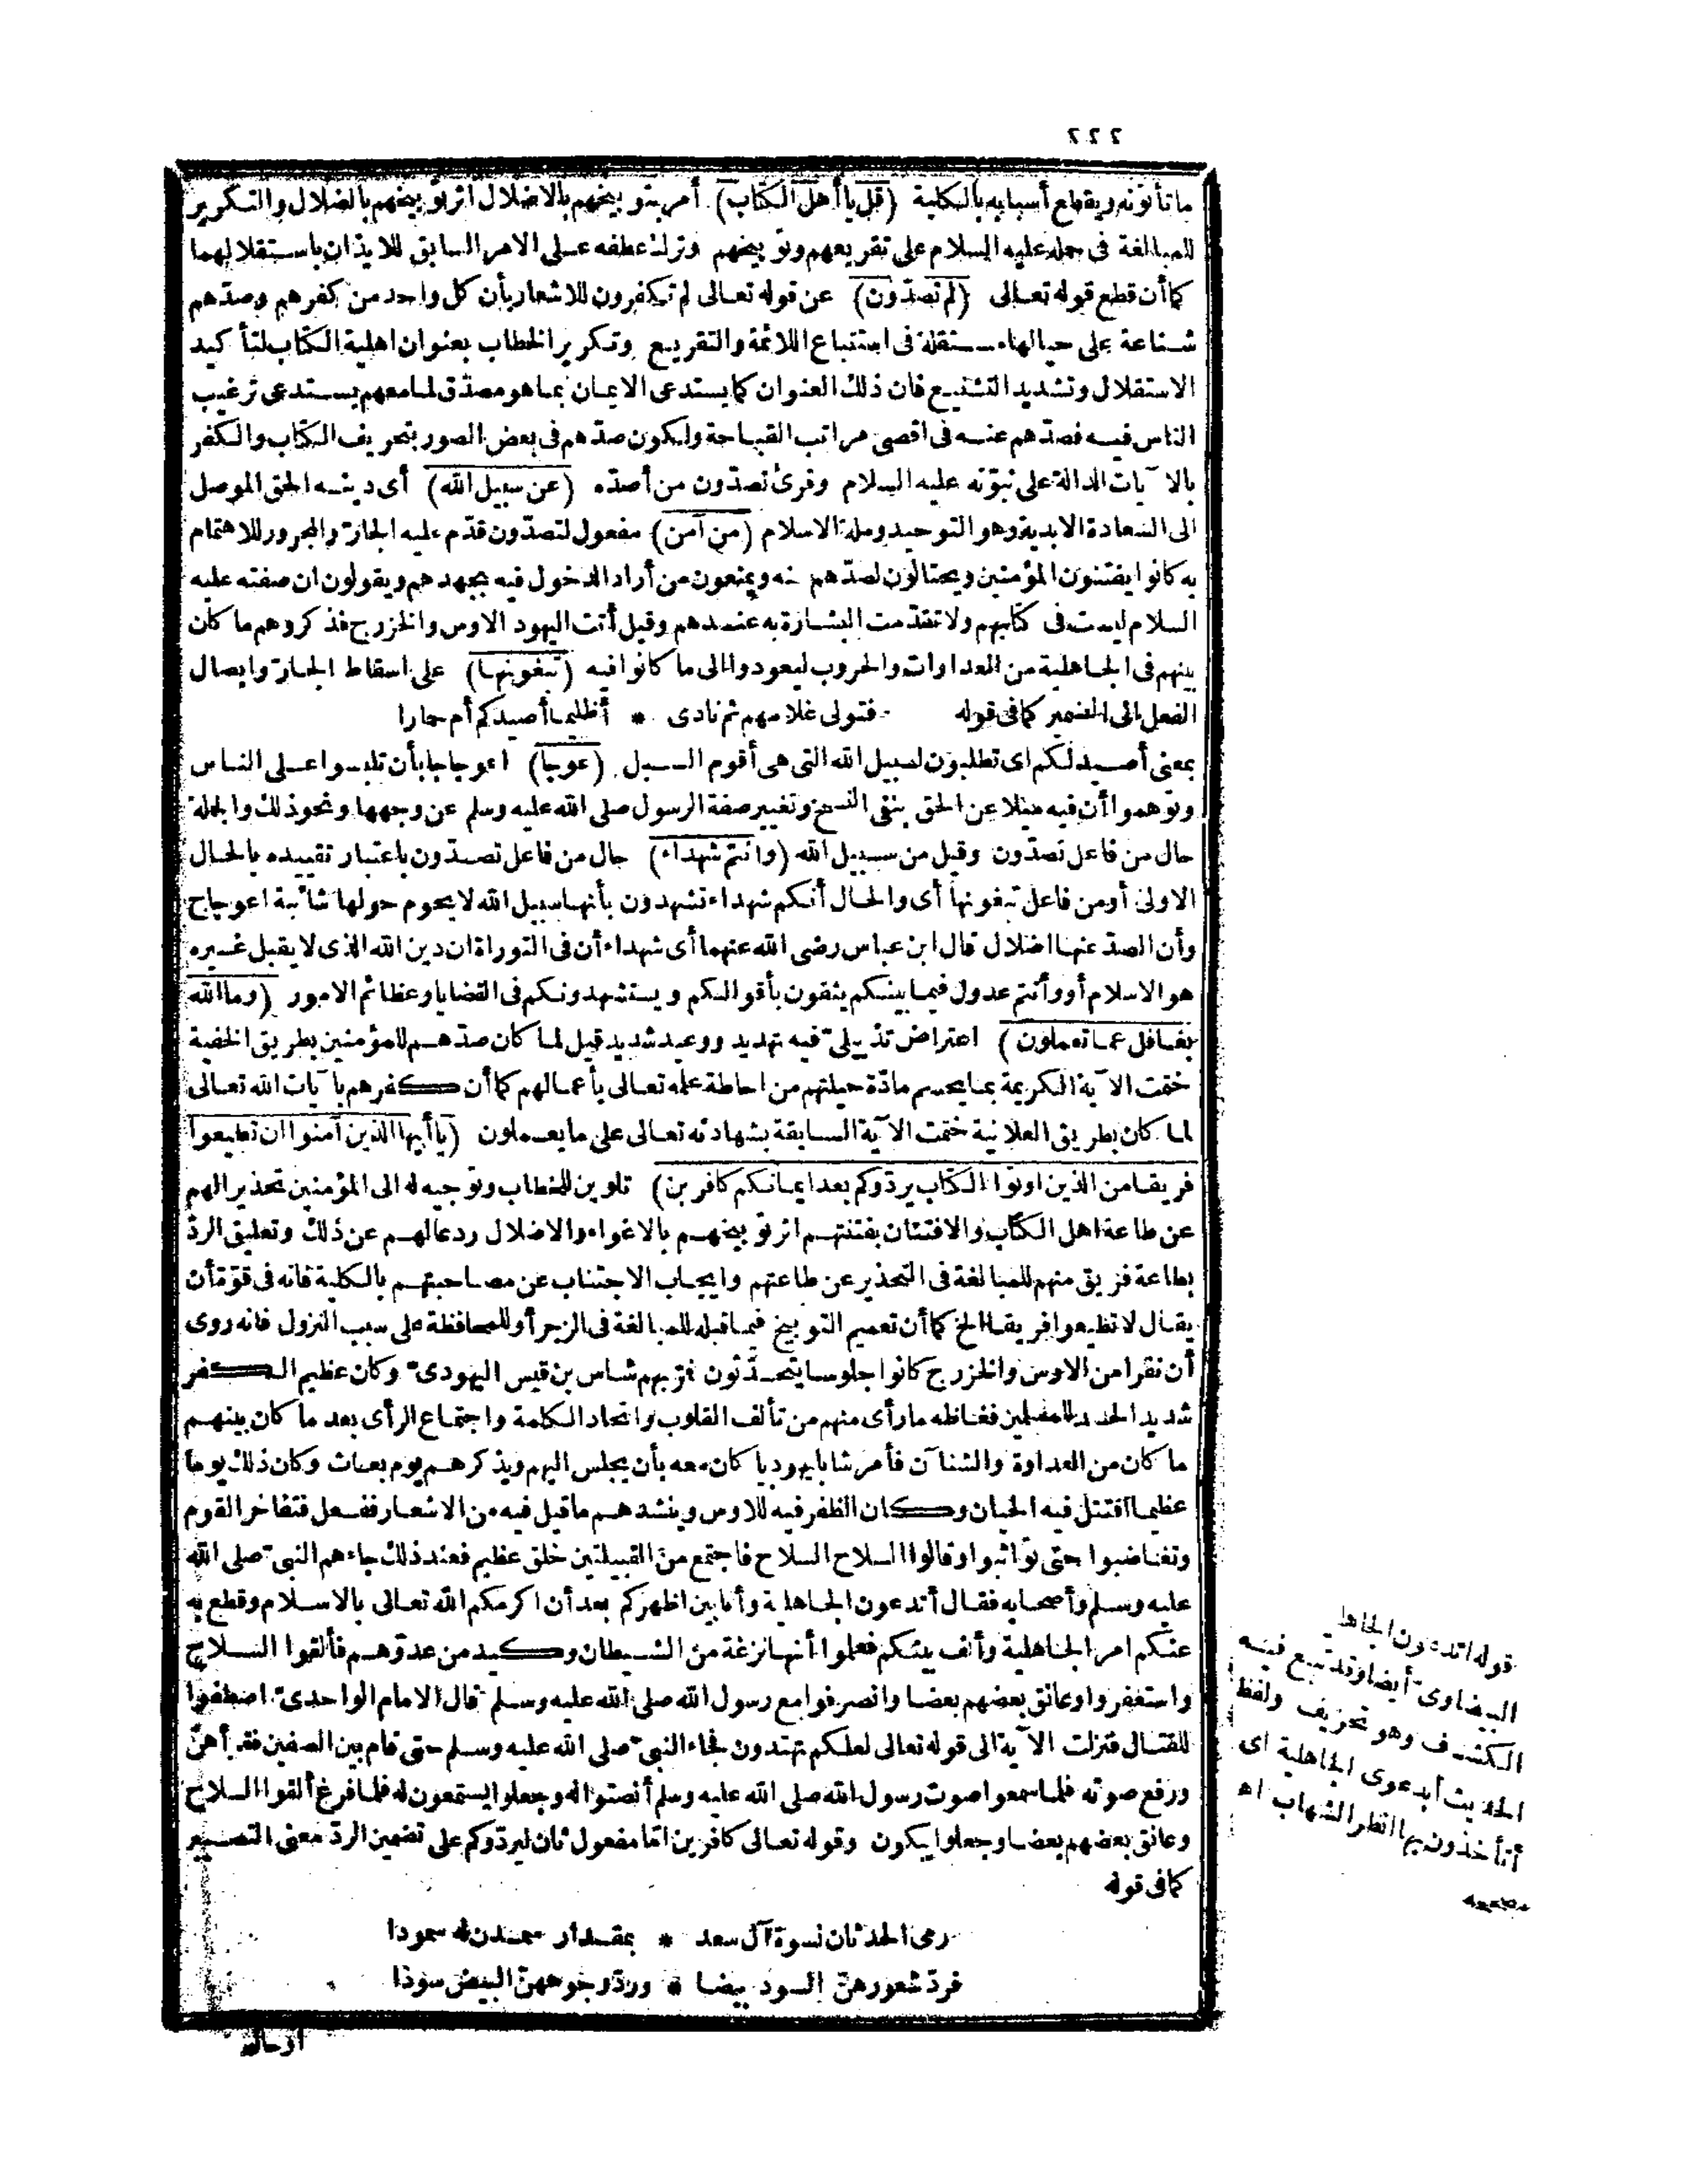 ٢٢٢
ما تأتونه ويقطع أسبابه بالكلية (قل يا أهل الكتاب) أمر بتوبيخهم بالاضلال اثر توبيخهم بالضلال والتكرير
للمبالغة فى حمله عليه السلام على تقريعهم وتوبيخهم وترك عطفه على الامر السابق للايذان باستقلالهما
كما أن قطع قوله تعالى (لم تصدّون) عن قوله تعالى لم تكفرون للاشعار بأن كل واحد من كفرهم وصدّهم
شناعة على حيالها مستقلة فى استتباع اللائمة والتقريع وتكرير الخطاب بعنوان اهلية الكتاب لتأكيد
الاستقلال وتشديد التشنيع فان ذلك العنوان كما يستدعى الايمان بما هو مصدّق لما معهم يستدعى ترغيب
الناس فيه فصدّهم عنه فى اقصى مراتب القباحة ولكون صدّهم فى بعض الصور بتحريف الكتاب والكفر
بالآيات الدالة على نبوّته عليه السلام وقرئ تصدّون من أصدّه (عن سبيل الله) أى دينه الحق الموصل
الى السعادة الابدية وهو التوحيد وملة الاسلام (من آمن) مفعول لتصدّون قدّم عليه الجارّ والمجرور للاهتمام
به كانوا يفتنون المؤمنين ويحتالون لصدّهم عنه ويمنعون من أراد الدخول فيه بجهدهم ويقولون ان صفته عليه
السلام ليست فى كتابهم ولا تقدّمت البشارة به عندهم وقيل أتت اليهود الاوس والخزرج فذكروهم ما كان
بينهم فى الجاهلية من العداوات والحروب ليعودوا الى ما كانوا فيه (تبغونها) على اسقاط الجارّ وايصال
الفعل الى الضمير كما فى قوله فتولى غلامهم ثم نادى * أظليما أصيدكم أم حمارا
بمعنى أصيد لكم اى تطلبون لسبيل الله التى هى أقوم السبل (عوجا) اعوجاجا بأن تلبسوا على الناس
وتوهموا أن فيه ميلا عن الحق بنفى النسخ وتغيير صفة الرسول صلى الله عليه وسلم عن وجهها ونحو ذلك والجملة
حال من فاعل تصدّون وقيل من سبيل الله (وانتم شهداء) حال من فاعل تصدّون باعتبار تقييده بالحال
الاولى أو من فاعل تبغونها أى والحال أنكم شهداء تشهدون بأنها سبيل الله لا يحوم حولها شائبة اعوجاج
وأن الصدّ عنها اضلال قال ابن عباس رضى الله عنهما أى شهداء أن فى التوراة ان دين الله الذى لا يقبل غيره
هو الاسلام أو وأنتم عدول فيما بينكم يثقون بأقوالكم ويستشهدونكم فى القضايا وعظائم الامور (وما الله
بغافل عما تعملون) اعتراض تذييلىّ فيه تهديد ووعيد شديد قيل لما كان صدّهم للمؤمنين بطريق الخفية
ختمت الآية الكريمة بما يحسم مادّة حيلتهم من احاطة علمه تعالى بأعمالهم كما أن كفرهم بآيات الله تعالى
لما كان بطريق العلانية ختمت الآية السابقة بشهادته تعالى على ما يعملون (يا أيها الذين آمنوا ان تطيعوا
فريقا من الذين اوتوا الكتاب يردّوكم بعد ايمانكم كافرين) تلوين للخطاب وتوجيه له الى المؤمنين تحذيرا لهم
عن طاعة اهل الكتاب والافتتان بفتنتهم اثر توبيخهم بالاغواء والاضلال ردعا لهم عن ذلك وتعليق الردّ
بطاعة فريق منهم للمبالغة فى التحذير عن طاعتهم وايجاب الاجتناب عن مصاحبتهم بالكلية فانه فى قوّة أن
يقال لا تطيعوا فريقا الخ كما أن تعميم التوبيخ فيما قبله للمبالغة فى الزجر أو للمحافظة على سبب النزول فانه روى
أن نفرا من الاوس والخزرج كانوا جلوسا يتحدّثون فمرّ بهم شاس بن قيس اليهودىّ وكان عظيم الكفر
شديد الحسد للمسلمين فغاظه ما رأى منهم من تألف القلوب واتحاد الكلمة واجتماع الرأى بعد ما كان بينهم
ما كان من العداوة والشنآن فأمر شابا يهوديا كان معه بأن يجلس اليهم ويذكرهم يوم بعاث وكان ذلك يوما
عظيما اقتتل فيه الحيان وكان الظفر فيه للاوس وينشدهم ما قيل فيه من الاشعار ففعل فتفاخر القوم
وتغاضبوا حتى تواثبوا وقالوا السلاح السلاح فاجتمع من القبيلتين خلق عظيم فعند ذلك جاءهم النبىّ صلى الله
عليه وسلم وأصحابه فقال أتدعون الجاهلية وأنا بين اظهركم بعد أن اكرمكم الله تعالى بالاسلام وقطع به
عنكم امر الجاهلية وألف بينكم فعلموا أنها نزغة من الشيطان وكيد من عدوّهم فألقوا السلاح
واستغفروا وعانق بعضهم بعضا وانصرفوا مع رسول الله صلى الله عليه وسلم قال الامام الواحدىّ اصطفوا
للقتال فنزلت الآية الى قوله تعالى لعلكم تهتدون فجاء النبىّ صلى الله عليه وسلم حتى قام بين الصفين فقرأهنّ
ورفع صوته فلما سمعوا صوت رسول الله صلى الله عليه وسلم أنصتوا له وجعلوا يستمعون له فلما فرغ ألقوا السلاح
وعانق بعضهم بعضا وجعلوا يبكون وقوله تعالى كافرين امّا مفعول ثان ليردّوكم على تضمين الردّ معنى التصيير
كما فى قوله
رمى الحدثان نسوة آل سعد * بمقدار سمدن له سمودا
فردّ شعورهنّ السود بيضا * وردّ وجوههنّ البيض سودا
أو حال
قوله اتدعون الجاهلية
البيضاوى أيضا وقد تبع فيه
الكشاف وهو تحريف ولفظ
الحديث أبدعوى الجاهلية اى
أتأخذون بها انظر الشهاب اه
مصححه